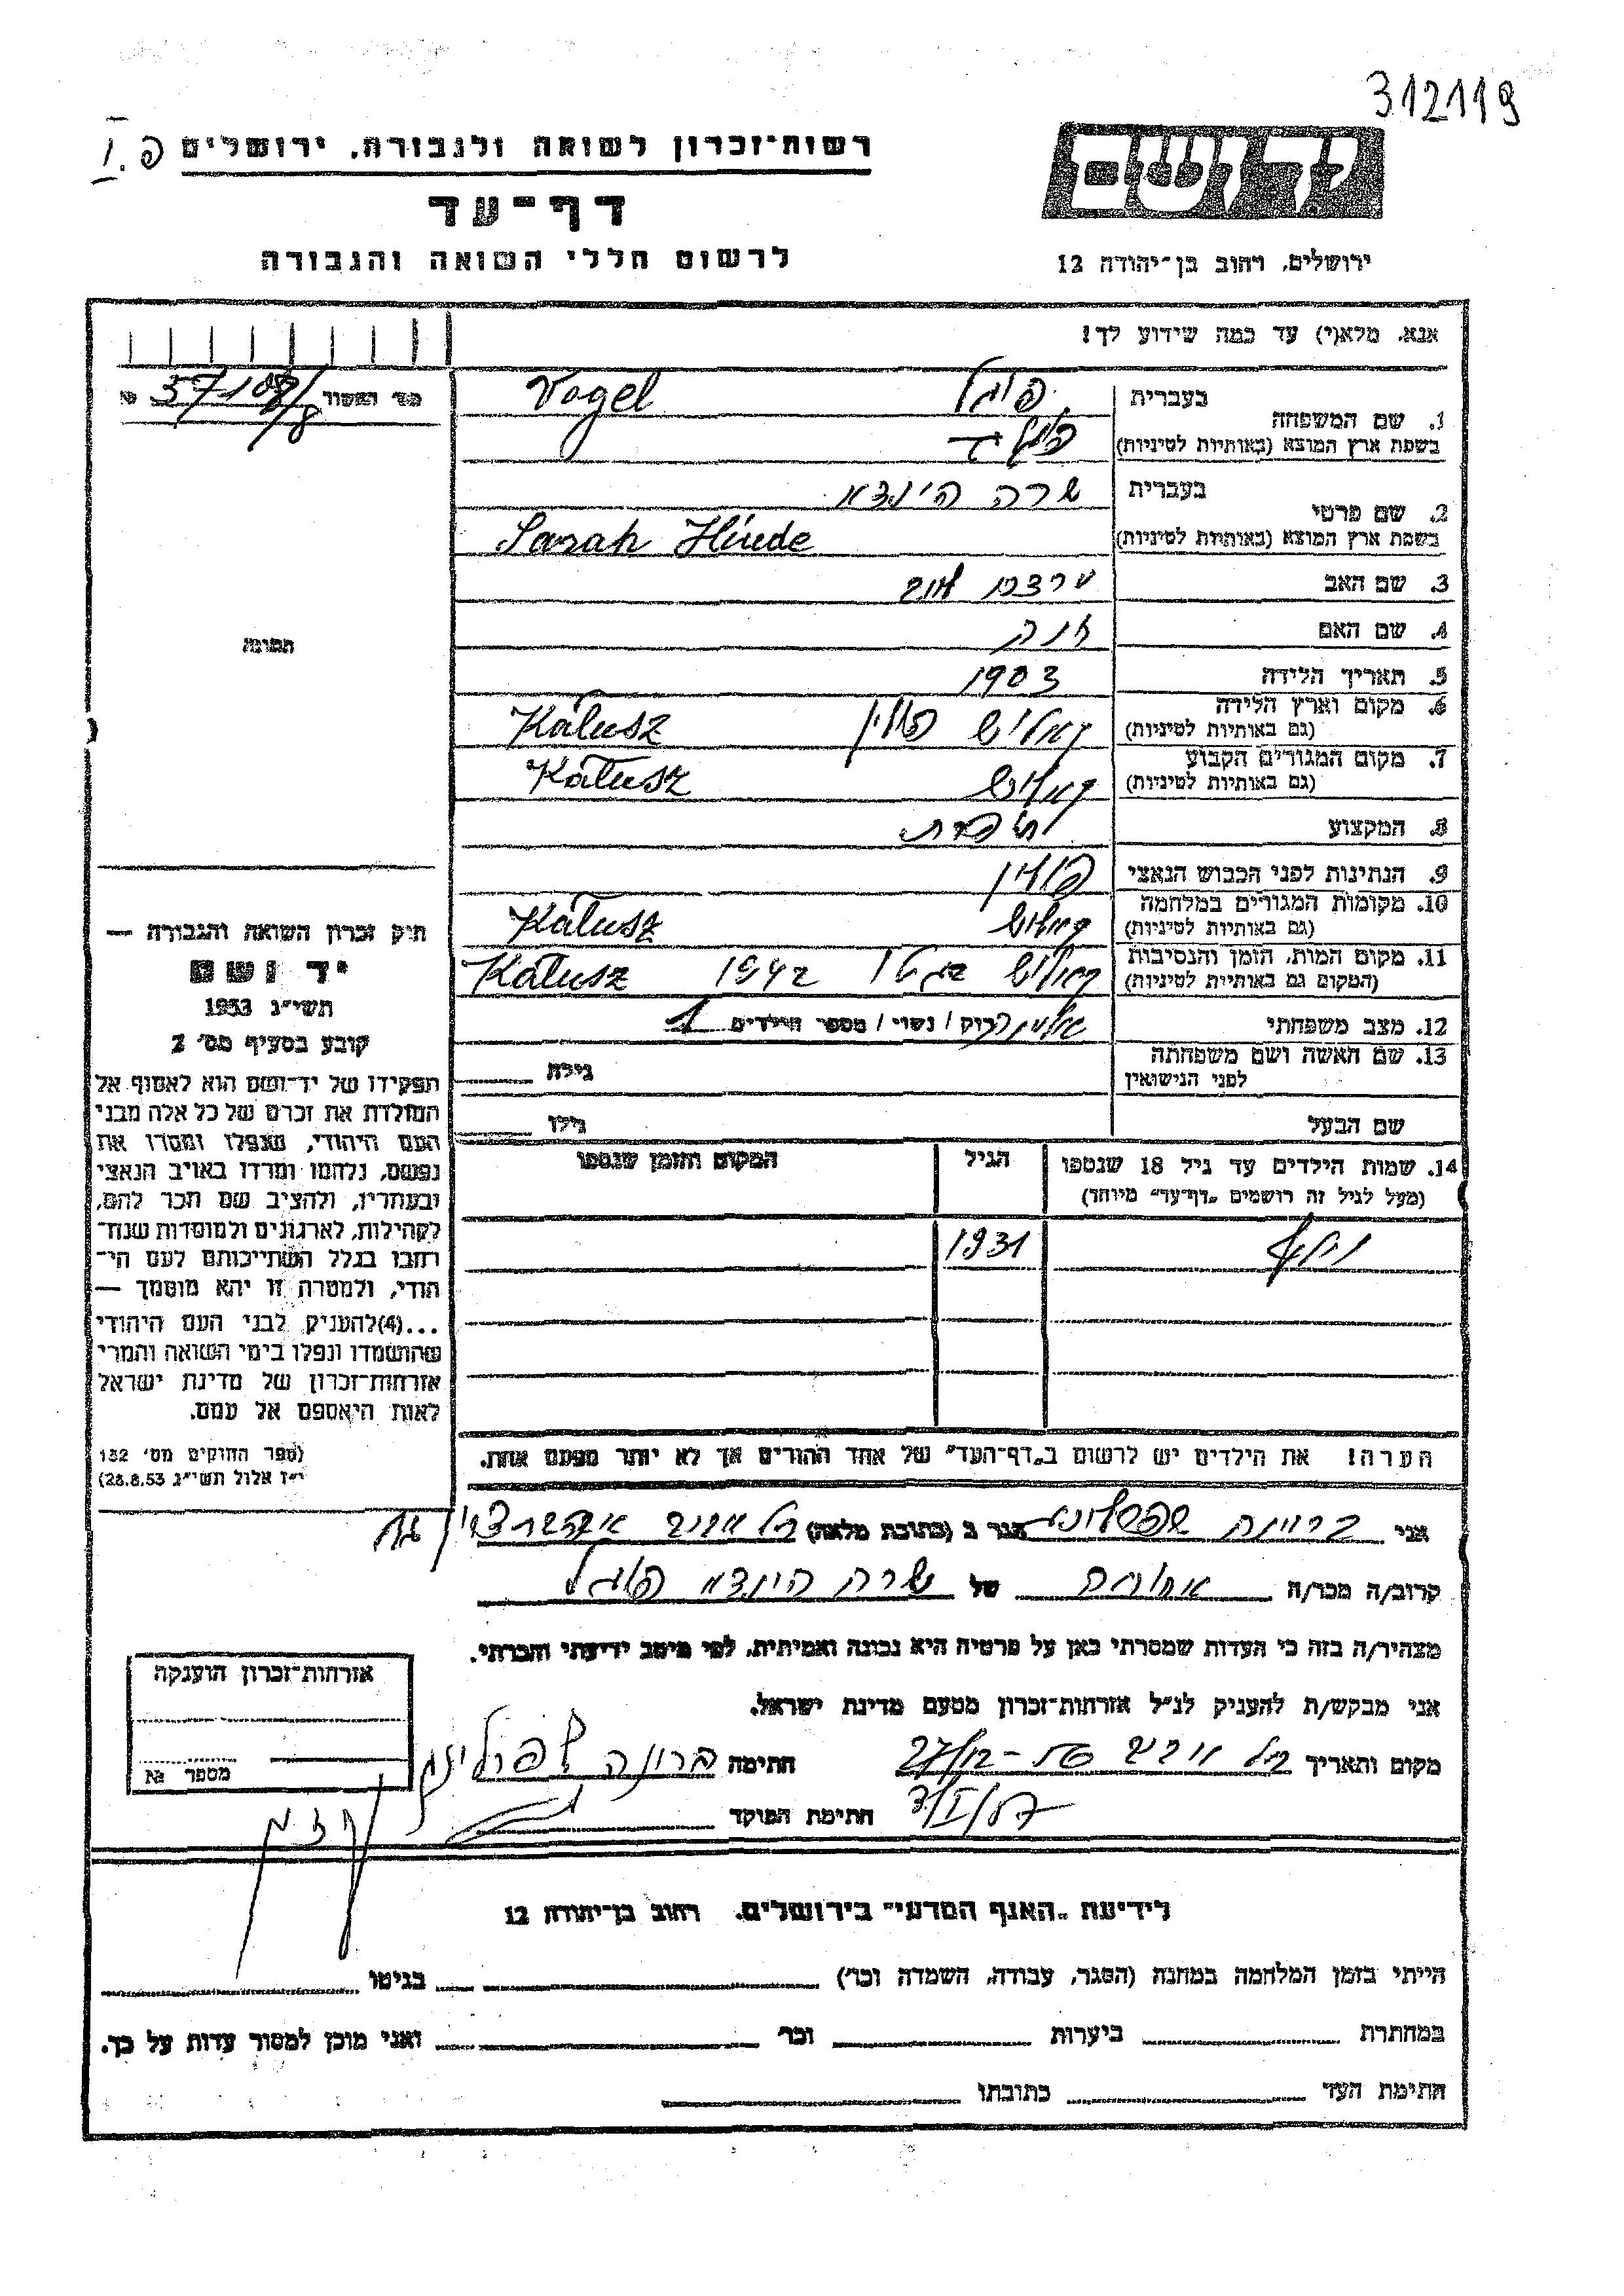 312119
רשות־זכרון לשואה ולגבורה. ירושלים
דף־עד
לרשום חללי השואה והגבורה
יד ושם
ירושלים, רחוב בן־יהודה 12
אנא, מלא(י) עד כמה שידוע לך!
1. שם המשפחה בעברית פוגל Vogel
בשפת ארץ המוצא (באותיות לטיניות)
2. שם פרטי בעברית שרה הינדא
בשפת ארץ המוצא (באותיות לטיניות) Sarah Hinde
3. שם האב
4. שם האם
5. תאריך הלידה 1903
6. מקום וארץ הלידה קאלוש פולין Kałusz
(גם באותיות לטיניות)
7. מקום המגורים הקבוע קאלוש Kałusz
(גם באותיות לטיניות)
8. המקצוע תופרת
9. הנתינות לפני הכבוש הנאצי פולין
10. מקומות המגורים במלחמה קאלוש Kałusz
(גם באותיות לטיניות)
11. מקום המות, הזמן והנסיבות קאלוש בגטו 1942 Kałusz
(המקום גם באותיות לטיניות)
12. מצב משפחתי אלמנה רוק / נשוי / מספר הילדים 1
13. שם האשה ושם משפחתה גילה
לפני הנישואין
שם הבעל גילו
14. שמות הילדים עד גיל 18 שנספו הגיל המקום והזמן שנספו
(מעל לגיל זה רושמים „דף־עד" מיוחד)
1931
הערה! את הילדים יש לרשום ב„דף־העד" של אחד ההורים אך לא יותר מפעם אחת.
התמונה
תיק זכרון השואה והגבורה —
יד ושם
תשי״ג 1953
קובע בסעיף מס׳ 2
תפקידו של יד־ושם הוא לאסוף אל
המולדת את זכרם של כל אלה מבני
העם היהודי, שנפלו ומסרו את
נפשם, נלחמו ומרדו באויב הנאצי
ובעוזריו, ולהציב שם וזכר להם,
לקהילות, לארגונים ולמוסדות שנח־
רבו בגלל השתייכותם לעם הי־
הודי, ולמטרה זו יהא מוסמך —
...(4) להעניק לבני העם היהודי
שהושמדו ונפלו בימי השואה והמרי
אזרחות־זכרון של מדינת ישראל
לאות היאספם אל עמם.
(ספר החוקים מס׳ 132
י״ז אלול תשי״ג 28.8.53)
אני ברוניה שפרלינג הגר ב (כתובת מלאה) תל אביב
קרוב/ה מכר/ה אחות של שרה הינדא פוגל
מצהיר/ה בזה כי העדות שמסרתי כאן על פרטיה היא נכונה ואמיתית, לפי מיטב ידיעתי והכרתי.
אני מבקש/ת להעניק לנ״ל אזרחות־זכרון מטעם מדינת ישראל.
מקום ותאריך תל אביב חתימה ברוניה שפרלינג
חתימת הפוקד
אזרחות־זכרון הוענקה
מספר №
לידיעת „האגף המדעי" בירושלים. רחוב בן־יהודה 12
הייתי בזמן המלחמה במחנה (הסגר, עבודה, השמדה וכו׳) בגיטו
במחתרת ביערות וכו׳ ואני מוכן למסור עדות על כך.
חתימת העד כתובתו